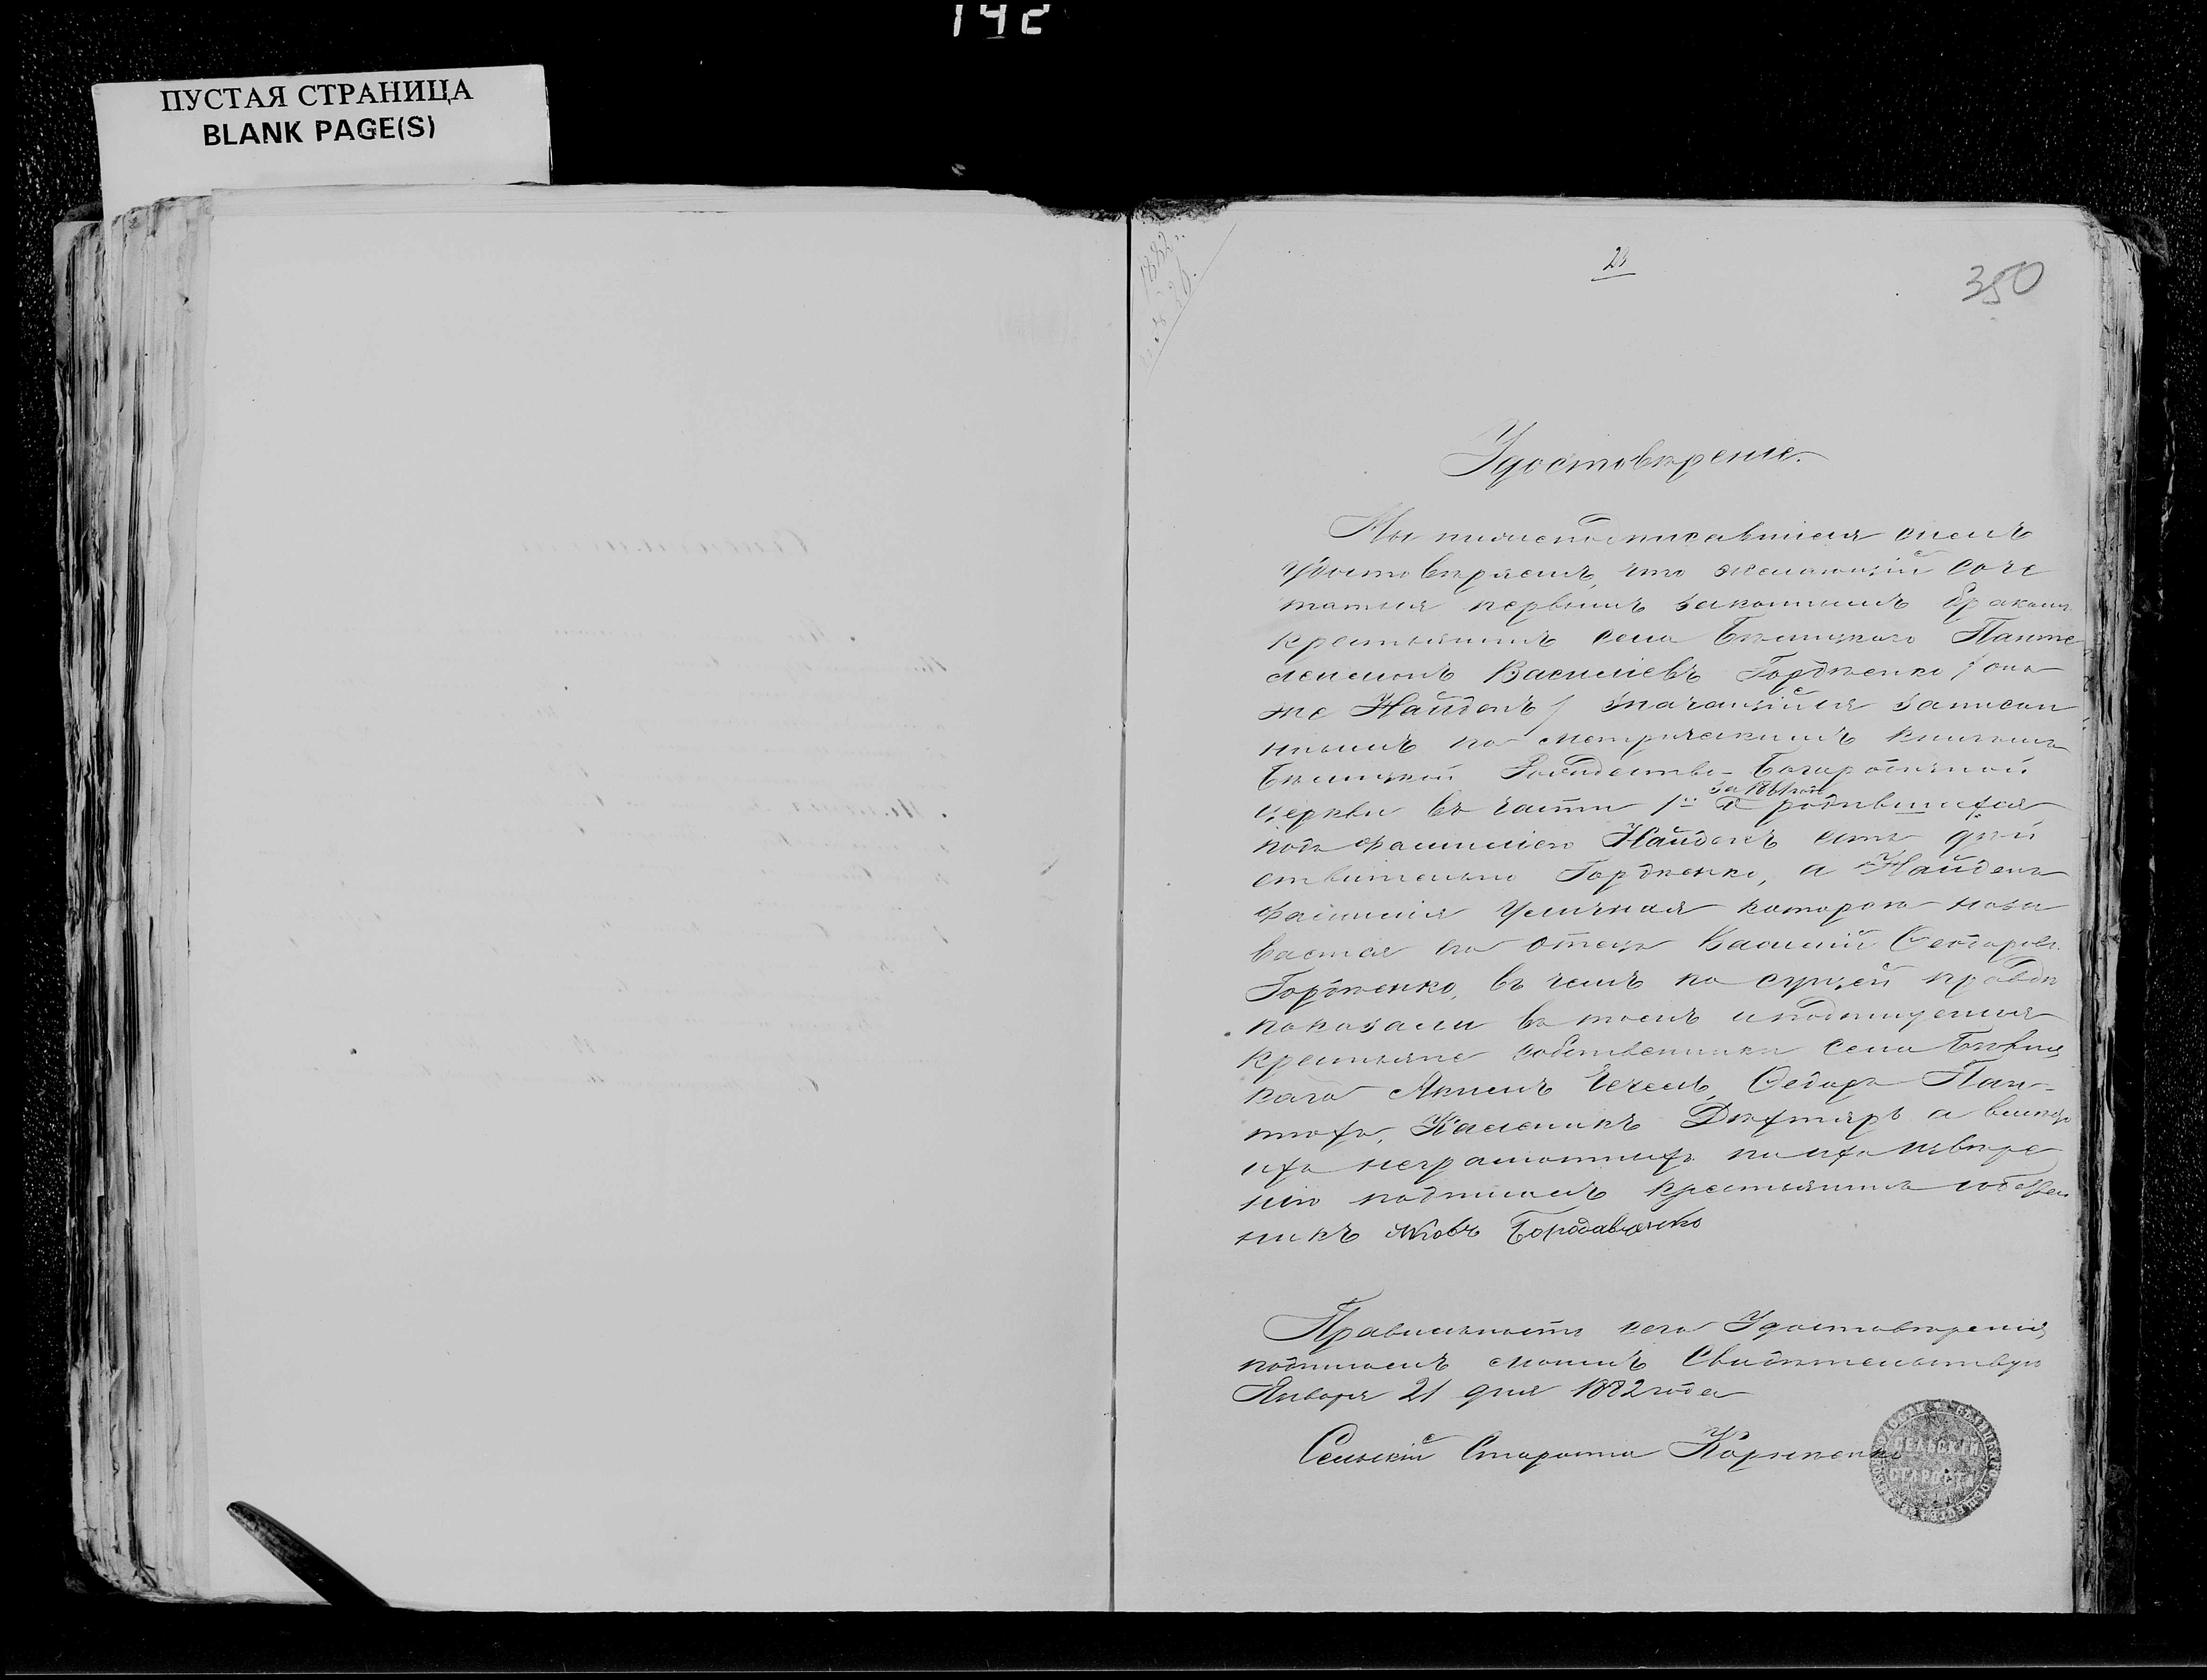 142
ПУСТАЯ СТРАНИЦА
BLANK PAGE(S)
1882 г.
№ 26.
350
Удостовѣреніе.
Мы нижеподписавшіеся симъ
удостовѣряемъ, что желающій соче
таться первымъ законнымъ бракомъ
крестьянинъ села Бѣлицкого Панте
леимонъ Васильевъ Гордѣенко / онъ
же Найденъ / значащійся записан
нымъ по метрическимъ книгамъ
Бѣлицкой Рождество-Богородичной
за 1861 годъ
церкви въ части 1й о родившихся
подъ фамиліею Найденъ есть дѣй
ствительно Гордѣенко, а Найденъ
фамилія уличная которою назы
вается его отецъ Василій Федоровъ
Гордѣенко, въ чемъ по сущей правдѣ
показали въ томъ и подпишемся
крестьяне собственники села Бѣлиц
каго Акимъ Чечель, Федоръ Пан-
Каленикъ Дѣхтярь а вмѣсто
ихъ неграмотныхъ по ихъ довѣре
нію подписалъ крестьянинъ собствен
никъ Яковъ Бородавченко
Правильность сего Удостовѣренія
подписомъ моимъ Свидѣтельствую
Января 21 дня 1882 года
Сельскій Староста
СЕЛЬСКІЙ
СТАРОСТА